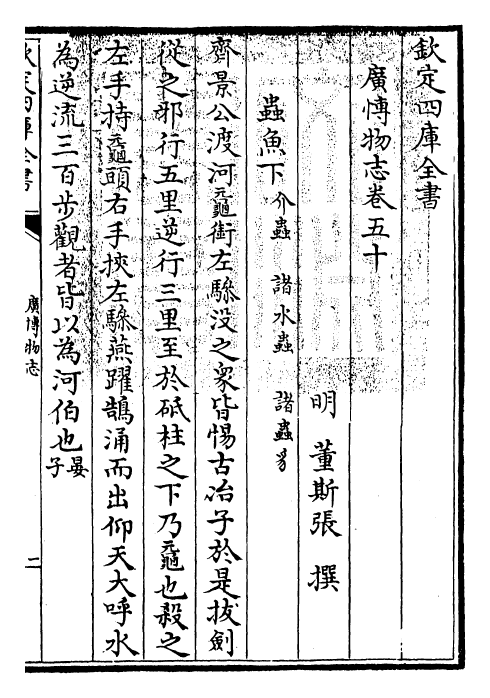 欽定四庫全書
廣博物志卷五十
明 董斯張 撰
蟲魚下 介蟲 諸水蟲 諸蟲豸
齊景公渡河黿銜左驂没之衆皆惕古冶子於是拔劍
從之邪行五里逆行三里至於砥柱之下乃黿也殺之
左手持黿頭右手挾左驂燕躍鵠涌而出仰天大呼水
為逆流三百步觀者皆以為河伯也晏子
欽定四庫全書
廣博物志
二